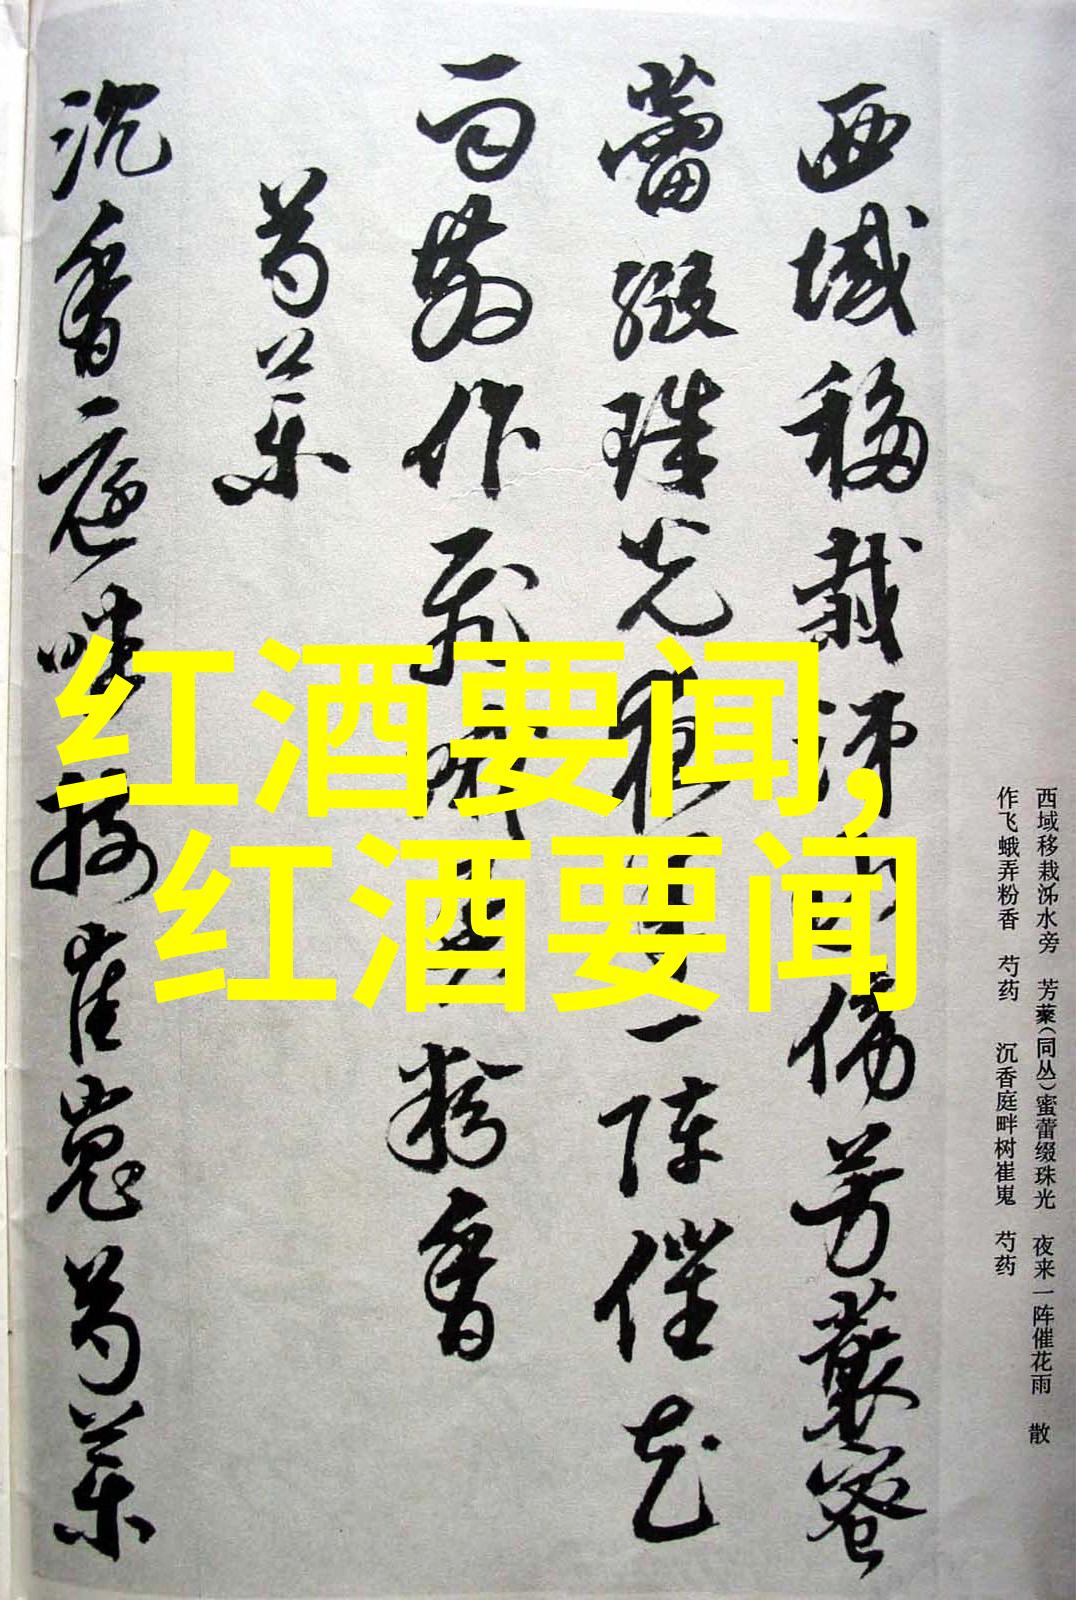 红酒要闻,
红酒要闻
西域移栽泲水傍芳藂蜜
蕾缀珠光夜来一阵催花
雨散作飛蛾弄粉香
芍藥
沉香庭畔樹崔嵬芍藥
西域移栽泲水旁 芳藂(同丛)蜜蕾缀珠光 夜来一阵催花雨 散
作飞蛾弄粉香 芍药 沉香庭畔树崔嵬 芍药